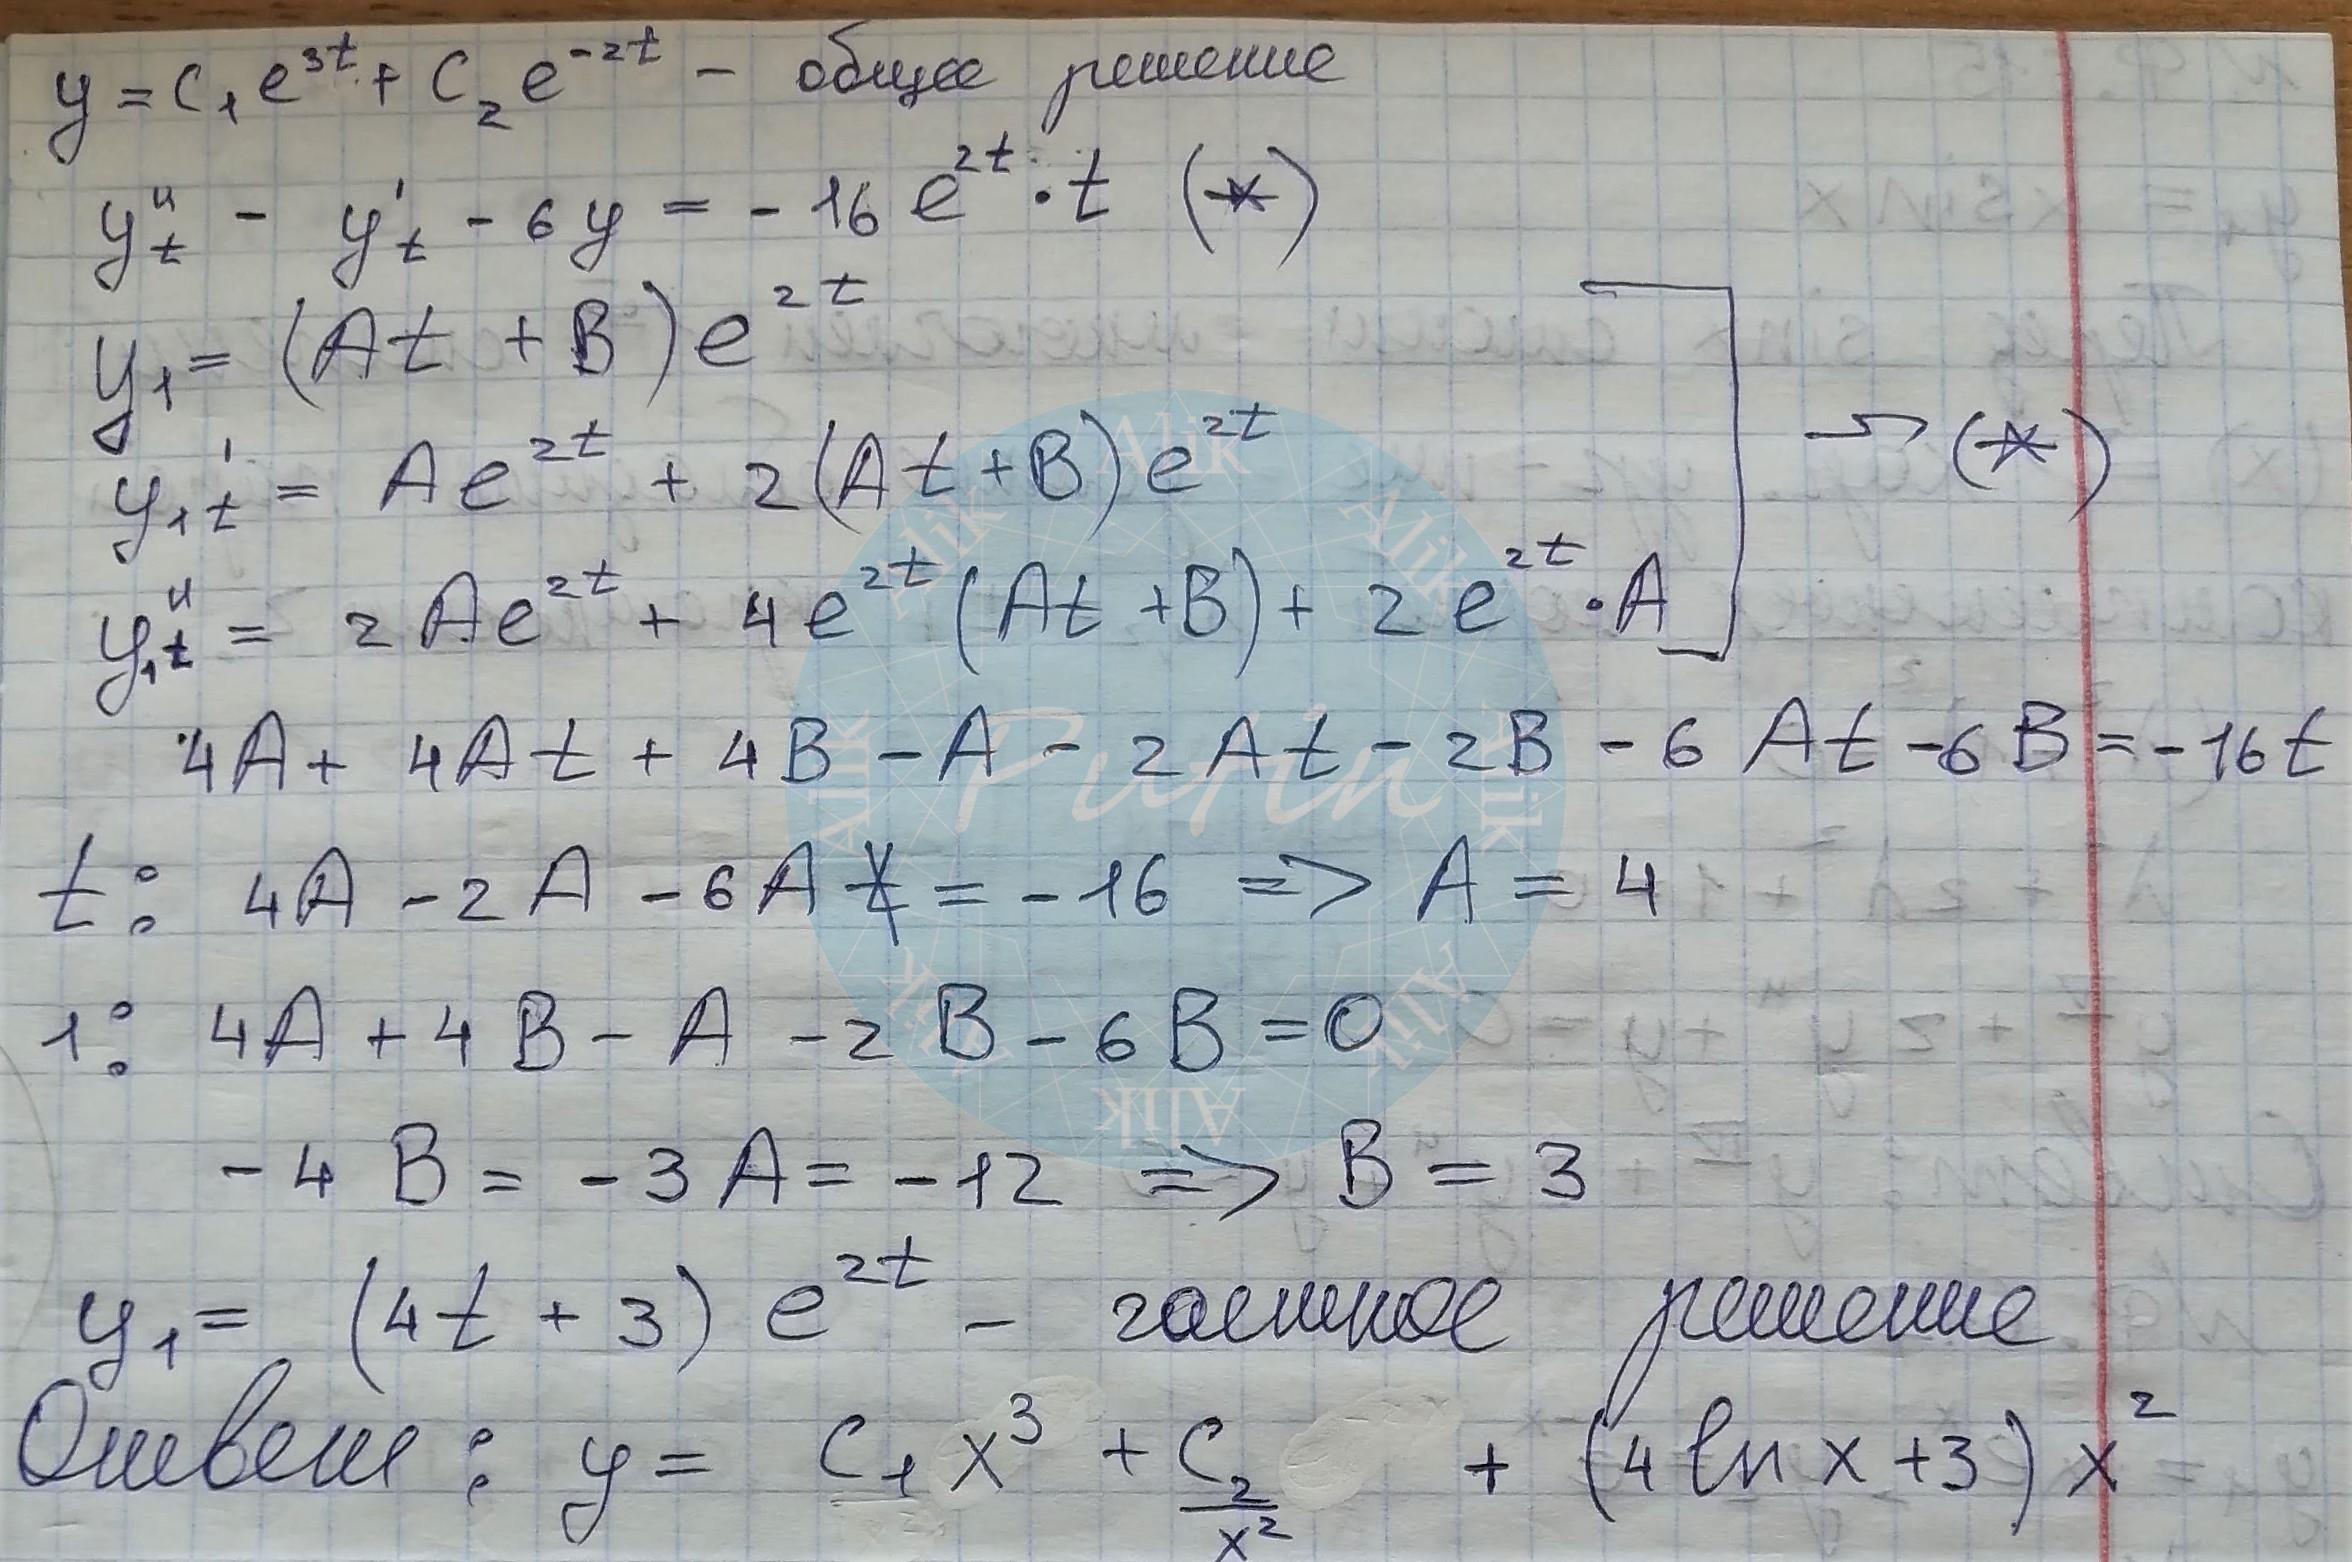 y = C₁e^{3t} + C₂e^{-2t} - общее решение
y''_t - y'_t - 6y = -16e^{2t}·t (*)
y₁ = (At + B)e^{2t}
y₁'_t = Ae^{2t} + 2(At+B)e^{2t} → (*)
y₁''_t = 2Ae^{2t} + 4e^{2t}(At+B) + 2e^{2t}·A
4A + 4At + 4B - A - 2At - 2B - 6At - 6B = -16t
t: 4A - 2A - 6A = -16 => A = 4
1: 4A + 4B - A - 2B - 6B = 0
-4B = -3A = -12 => B = 3
y₁ = (4t + 3)e^{2t} - частное решение
Ответ: y = C₁x³ + C₂/x² + (4 ln x + 3)x²
Alik
Alik
Alik
Alik
Alik
Alik
Alik
Alik
Putin